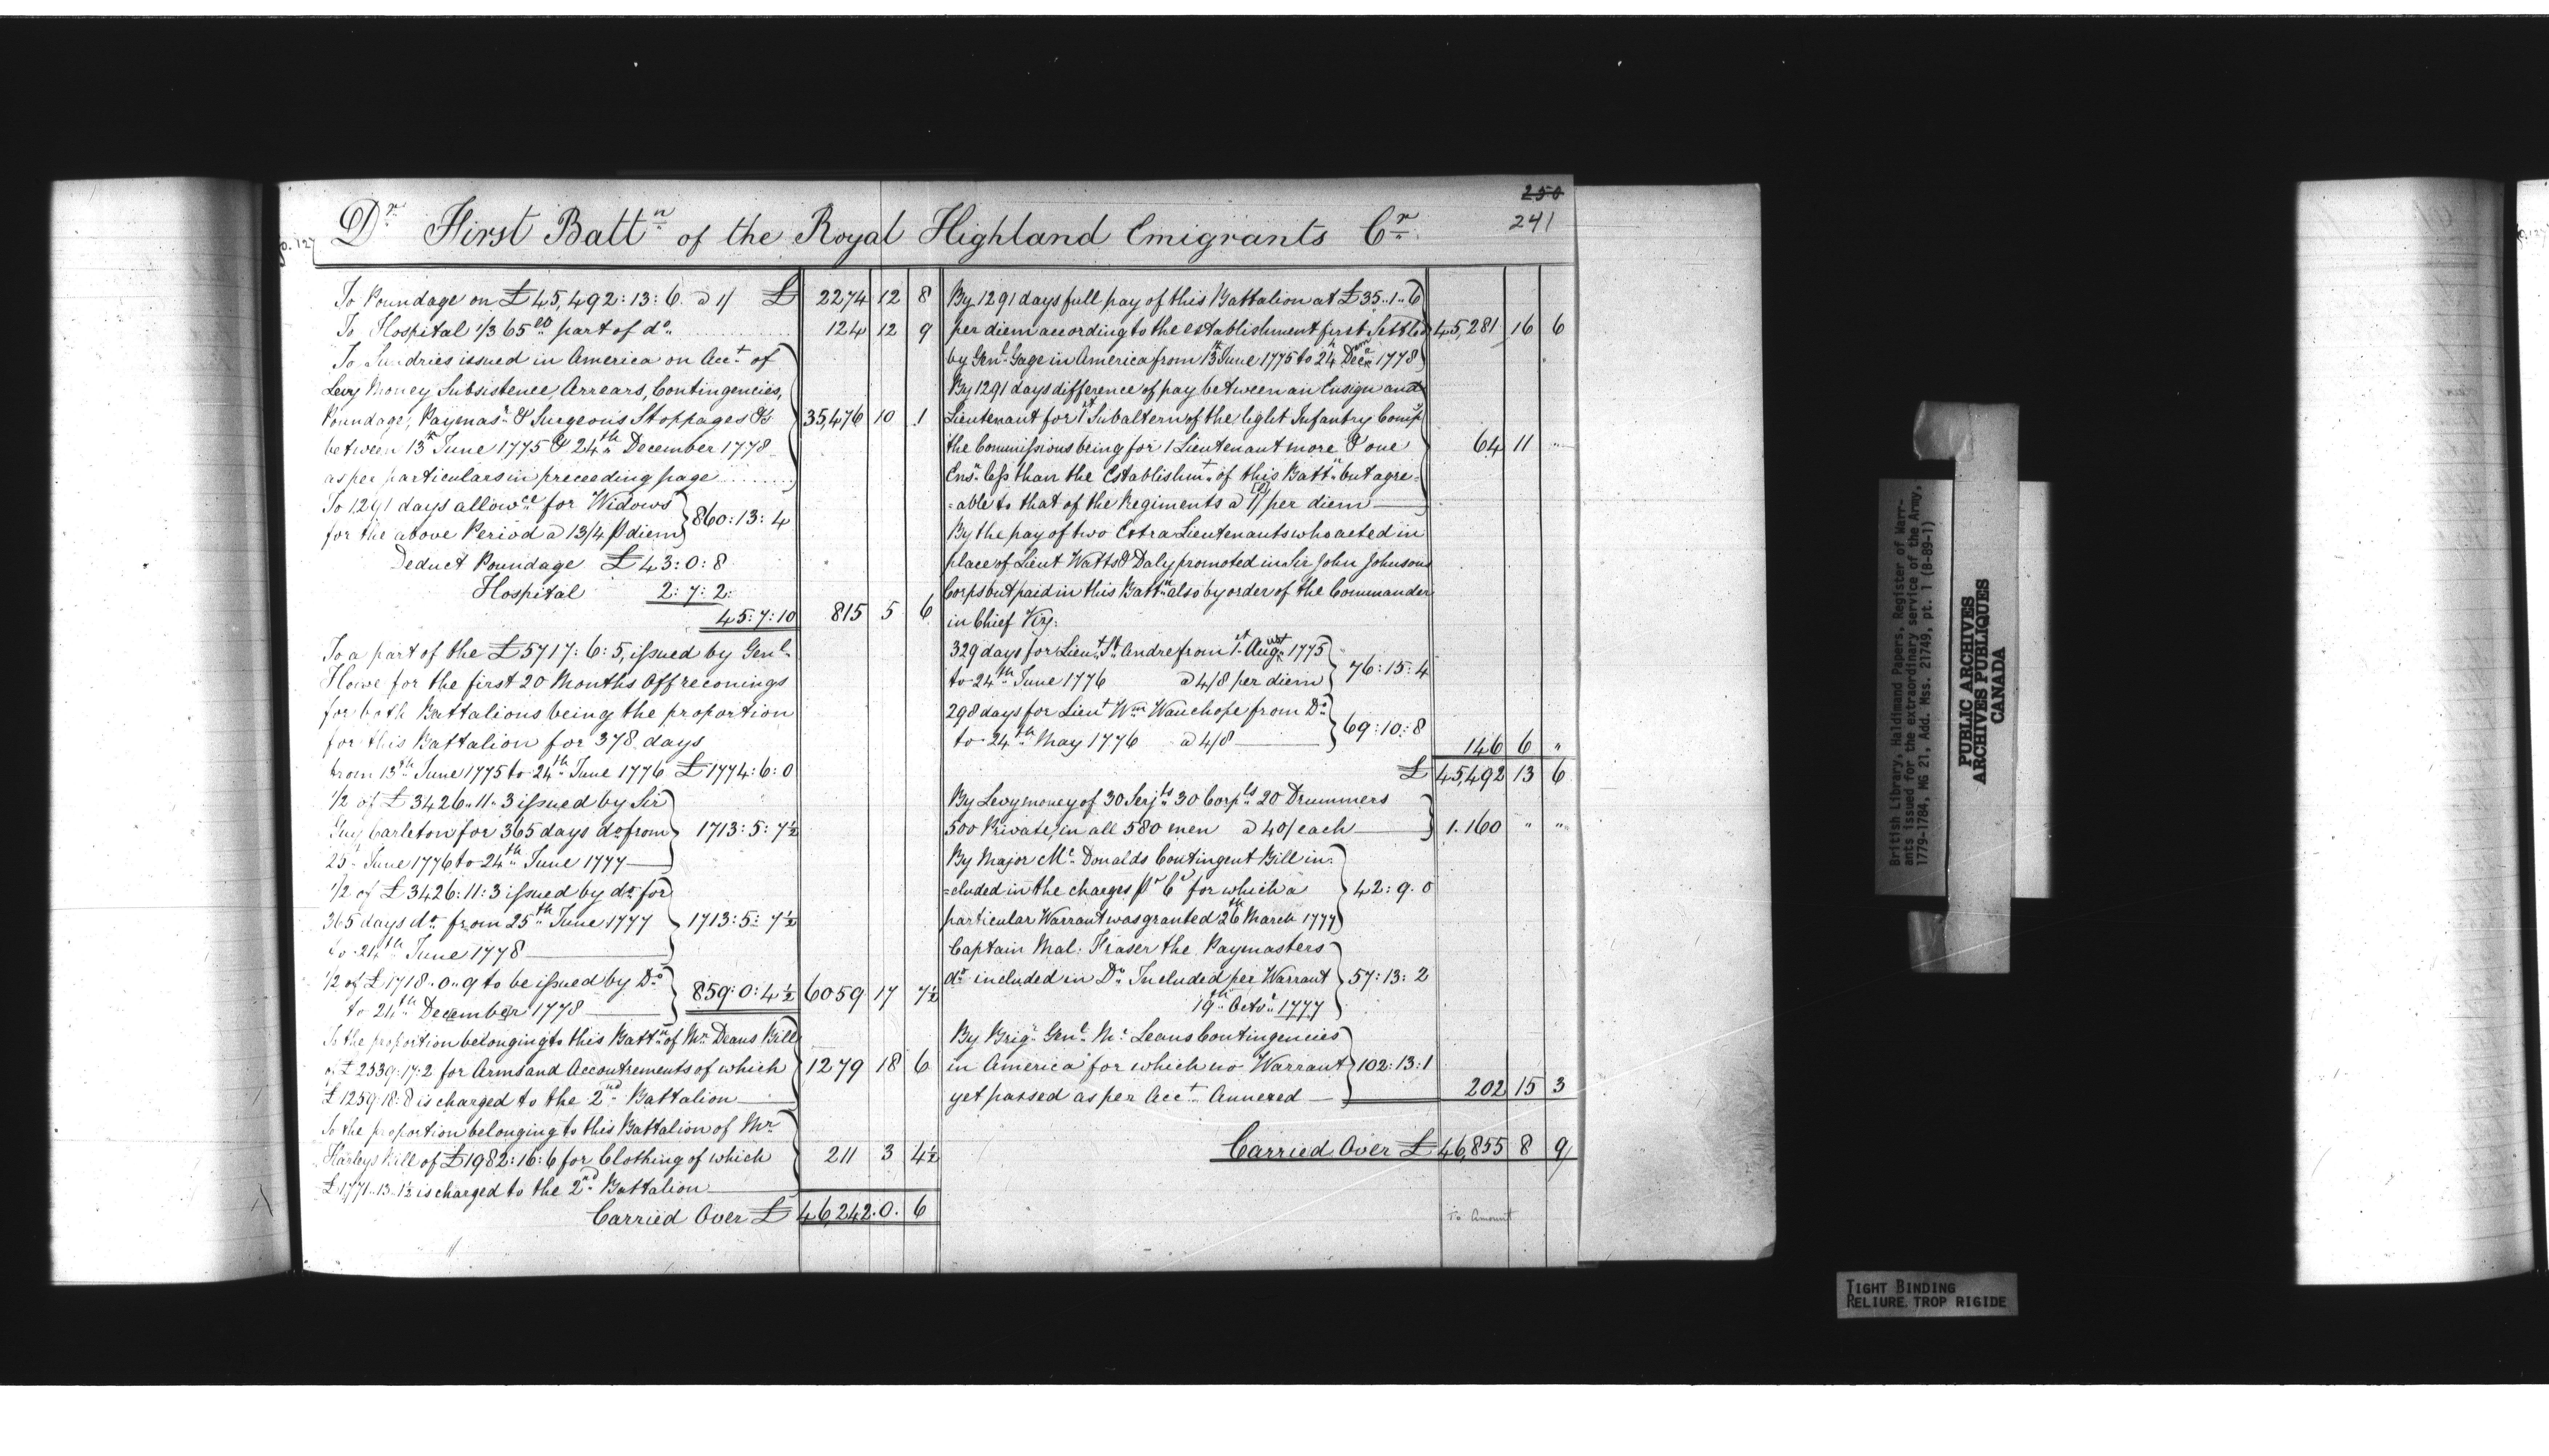 250
241
fo. 127
Dr. First Battn. of the Royal Highland Emigrants Cr.
To Poundage on £45,492:13:6. a 1/ £ 2274 12 8
To Hospital 1/365th part of do. 124 12 9
To Sundries issued in America on Acct. of
Levy Money Subsistence, Arrears, Contingencies,
Poundage, Paymasr. & Surgeons Stoppages &c
between 13th June 1775 & 24th December 1778
35,476 10 1
as per particulars in preceeding page
To 1291 days allowce. for Widows
for the above Period a 13/4 P diem
860:13:4
Deduct Poundage £43:0:8
Hospital 2:7:2:
45:7:10 815 5 6
To a part of the £5717:6:5, issued by Genl.
Howe for the first 20 Months Offreconings
for both Battalions being the proportion
for this Battalion for 378 days
from 13th June 1775 to 24th June 1776 £1774:6:0
1/2 of £3426..11..3 issued by Sir
Guy Carleton for 365 days do from 1713:5:7½
25 June 1776 to 24th June 1777
1/2 of £3426:11:3 issued by do. for
365 days do. from 25th June 1777 1713:5:7½
to 24th June 1778
1/2 of £1718..0..9 to be issued by Do.
to 24th December 1778
859:0:4½ 6059 17 7½
To the proportion belonging to this Battn. of Mr. Deans Bill
of £2539:17:2 for Arms and Accoutrements of which 1279 18 6
£1259:18:8 is charged to the 2nd. Battalion
To the proportion belonging to this Battalion of Mr.
Harleys Bill of £1982:16:6 for Clothing of which 211 3 4½
£1771..13..1½ is charged to the 2nd. Battalion
Carried Over £ 46,242.0. 6
By 1291 days full pay of this Battalion at £35..1..6
per diem according to the establishment first Settled 45,281 16 6
by Genl. Gage in America from 13th June 1775 to 24th Decem. 1778
By 1291 days difference of pay between an Ensign and
Lieutenant for 1st Subaltern of the light Infantry Compy
the Commissions being for 1 Lieutenant more & one 64 11 "
Ensn. less than the Establishmt. of this Battn. but agre=
=able to that of the Regiments a 1/ per diem
By the pay of two Extra Lieutenants who acted in
place of Lieut Watts & Daly promoted in Sir John Johnsons
Corps but paid in this Battn. also by order of the Commander
in Chief Viz:
329 days for Lieut. St. Andre from 1st August 1775
to 24th June 1776 a 4/8 per diem
76:15:4
298 days for Lieut Wm Wauchope from Do.
to 24th May 1776 a 4/8
69:10:8
146 6 "
£ 45,492 13 6
By Levy money of 30 Serjts. 30 Corpls 20 Drummers
500 Private, in all 580 men a 40/ each 1.160 " "
By Major Mc. Donalds Contingent Bill in=
=cluded in the charges Pr Ca for which a 42:9.0
particular Warrant was granted 26th March 1777
Captain Mal: Fraser the Paymasters
do. included in Do. Included per Warrant 57:13:2
19th Octor. 1777
By Brigr. Genl. Mc. Leans Contingencies
in America for which no Warrant 102:13:1
yet passed as per Acct. Annexed 202 15 3
Carried Over £ 46,855 8 9
To Amount
British Library, Haldimand Papers, Register of Warr-
ants issued for the extraordinary service of the Army,
1779-1784, MG 21, Add. Mss. 21749, pt. 1 (B-89-1)
PUBLIC ARCHIVES
ARCHIVES PUBLIQUES
CANADA
TIGHT BINDING
RELIURE TROP RIGIDE